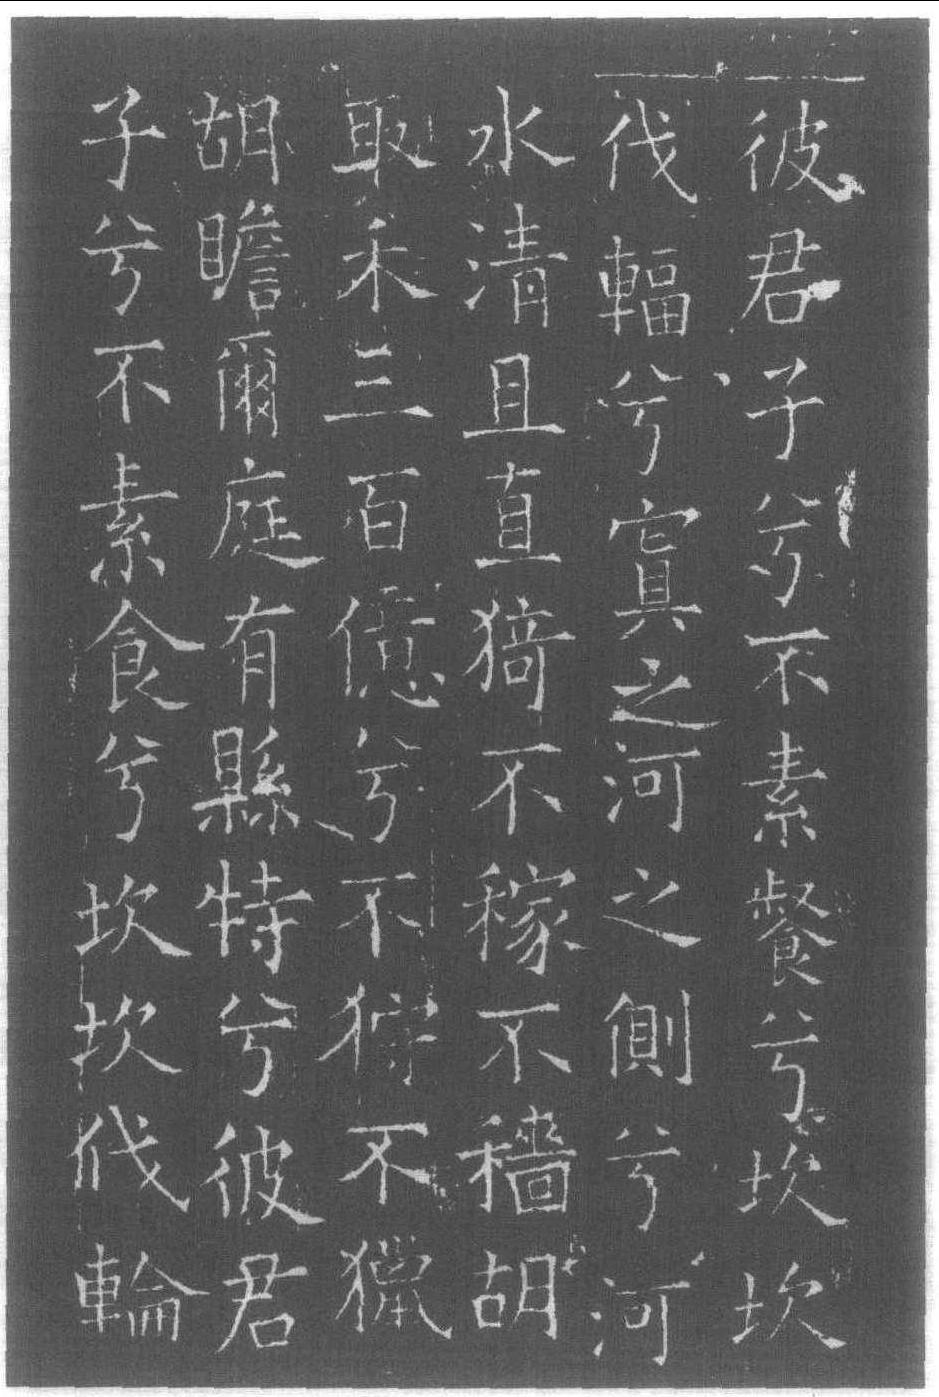 彼君子兮不素餐兮坎坎
伐輻兮寘之河之側兮河
水清且直猗不稼不穡胡
取禾三百億兮不狩不獵
胡瞻爾庭有縣特兮彼君
子兮不素食兮坎坎伐輪